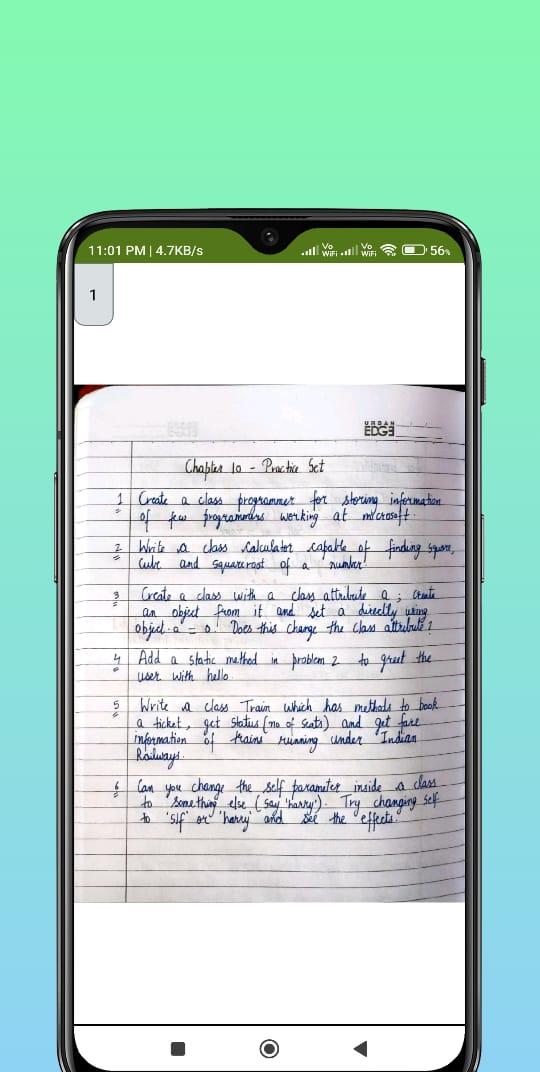 11:01 PM | 4.7KB/s
Vo WiFi Vo WiFi 56%
1
URBAN
EDGE
Chapter 10 - Practice Set
1 Create a class programmer for storing information
of few programmers working at microsoft.
2 Write a class calculator capable of finding square,
cube and squareroot of a number.
3 Create a class with a class attribute a ; create
an object from it and set a directly using
object.a = 0. Does this change the class attribute?
4 Add a static method in problem 2 to greet the
user with hello.
5 Write a class Train which has methods to book
a ticket, get status (no of seats) and get fare
information of trains running under Indian
Railways.
6 Can you change the self parameter inside a class
to something else (say 'harry'). Try changing self
to 'slf' or 'harry' and see the effects.